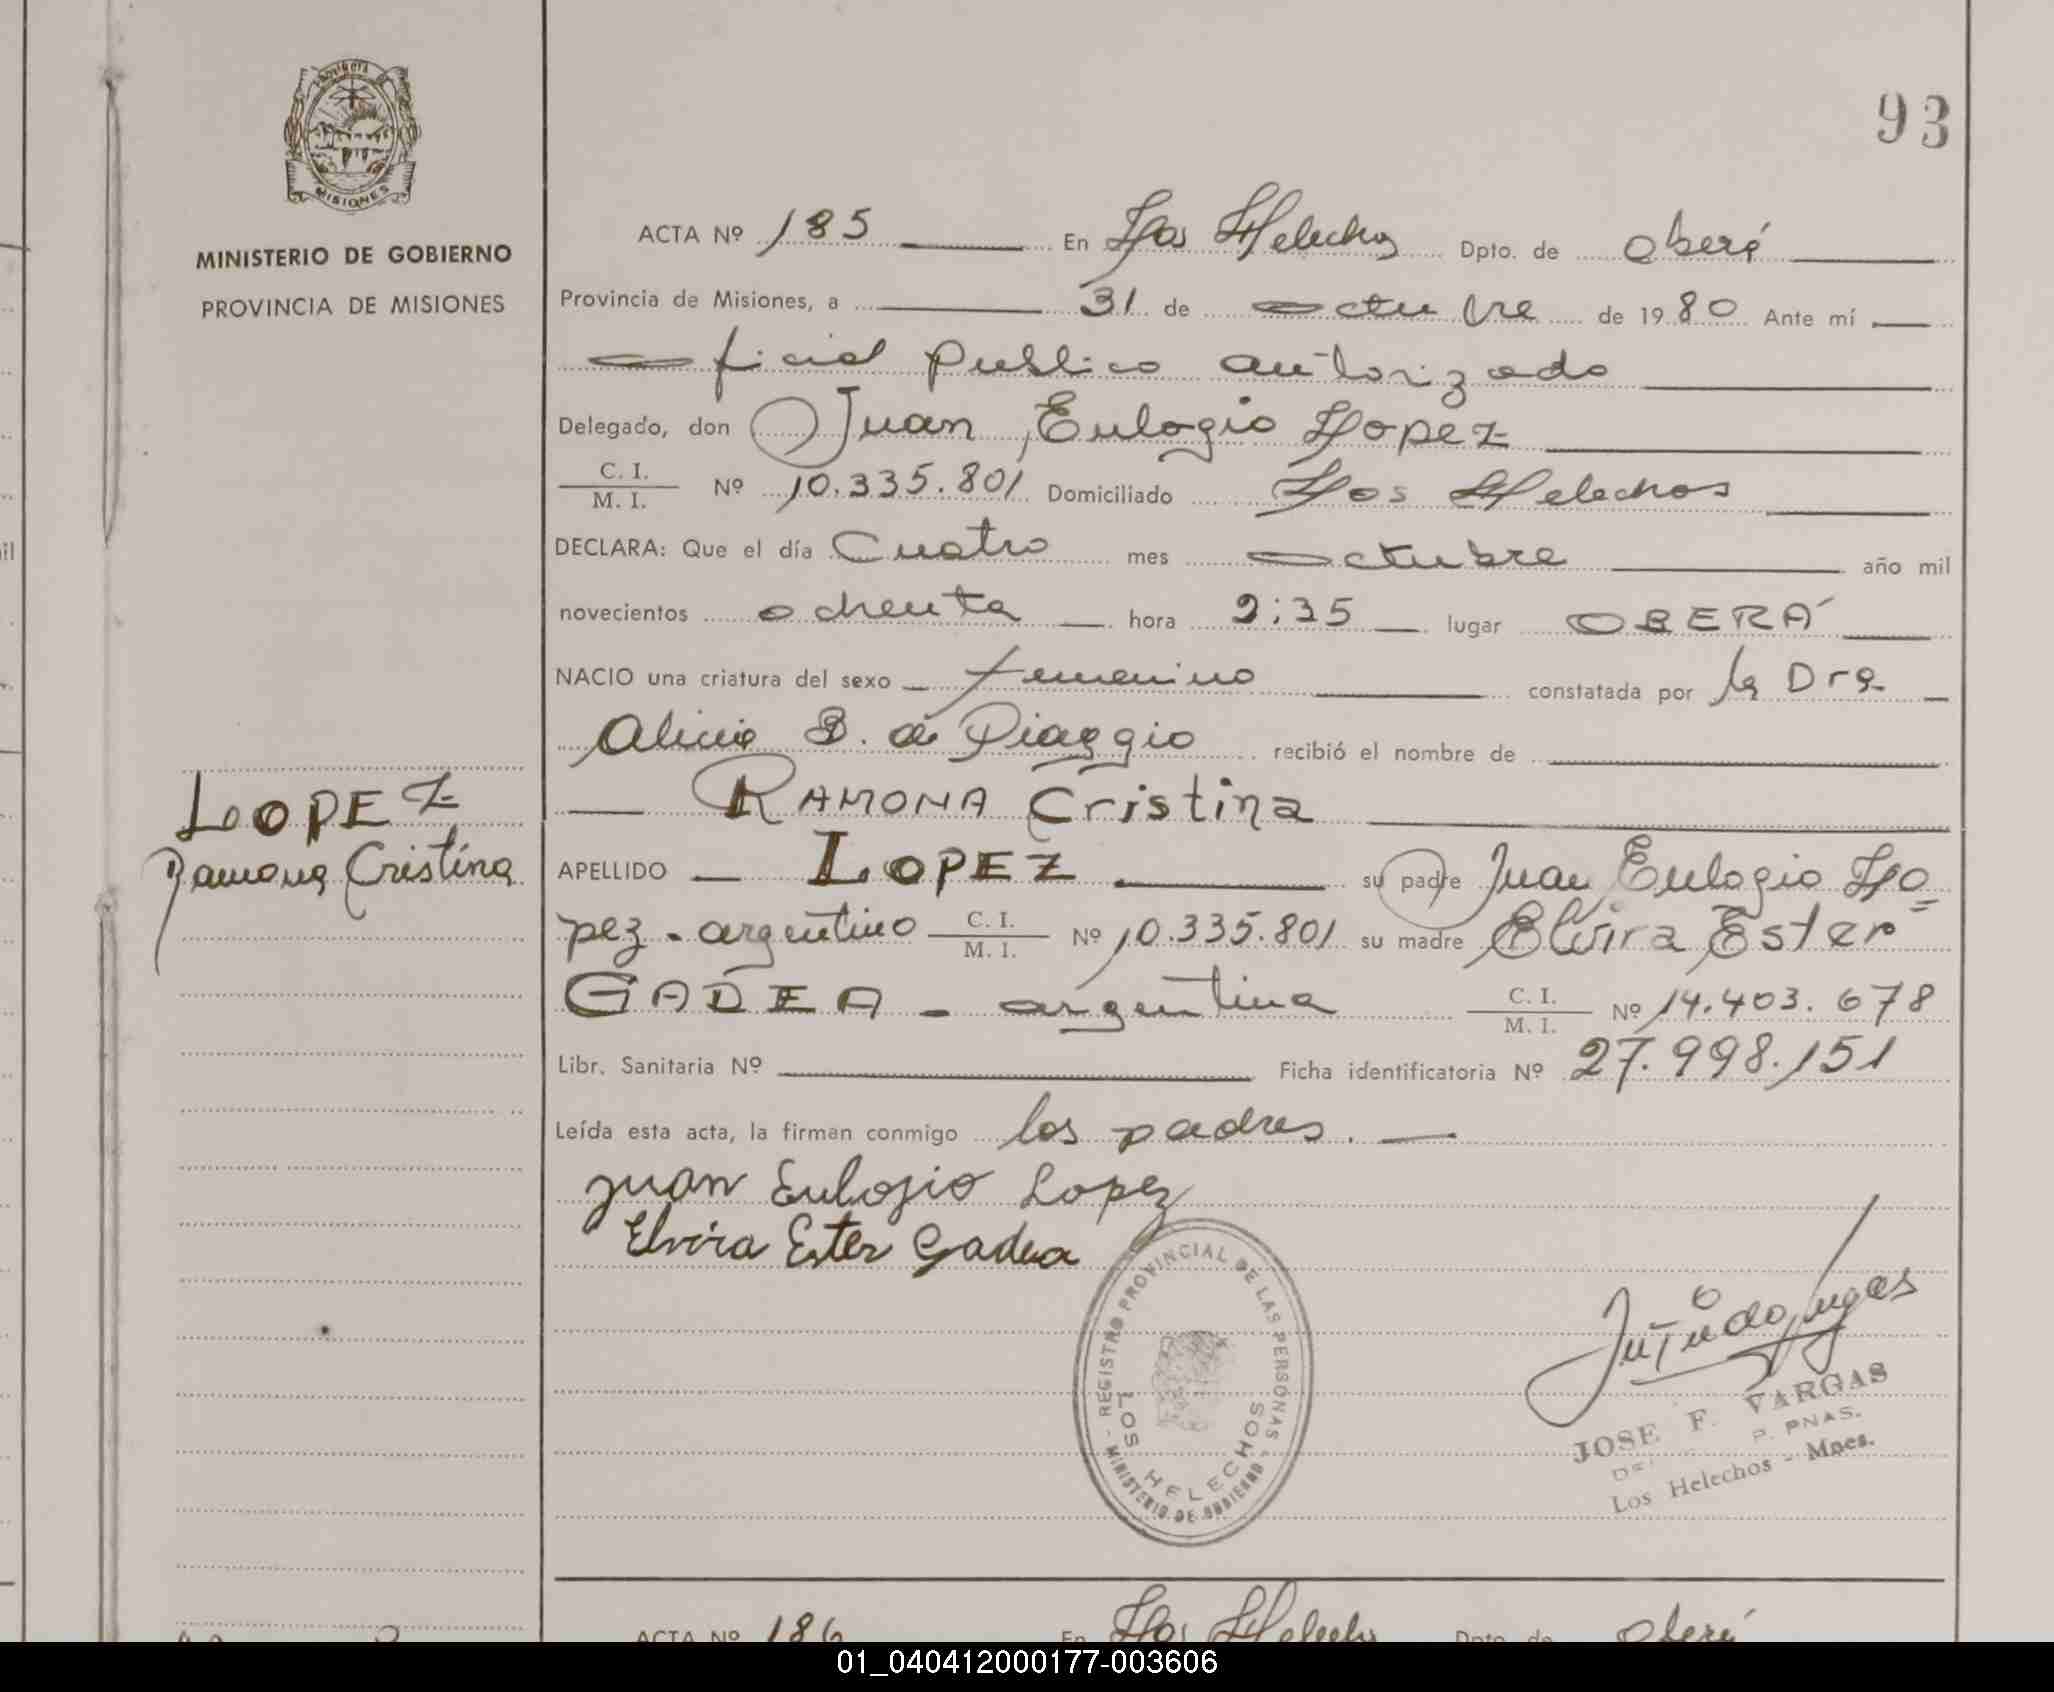 PROVINCIA DE
MISIONES
MINISTERIO DE GOBIERNO
PROVINCIA DE MISIONES
93
ACTA Nº 185 En Los Helechos Dpto. de Oberá
Provincia de Misiones, a 31 de octubre de 1980 Ante mí
oficial Publico autorizado
Delegado, don Juan Eulogio Lopez
C. I.
M. I. Nº 10.335.801 Domiciliado Los Helechos
DECLARA: Que el día Cuatro mes octubre año mil
novecientos ochenta hora 2:35 lugar OBERÁ
NACIO una criatura del sexo femenino constatada por la Dra
Alicia B. de Piaggio recibió el nombre de
RAMONA Cristina
LOPEZ
Ramona Cristina
APELLIDO LOPEZ su padre Juan Eulogio Lo=
pez - argentino C. I. M. I. Nº 10.335.801 su madre Elvira Ester
GADEA - argentina C. I. M. I. Nº 14.403.678
Libr. Sanitaria Nº Ficha identificatoria Nº 27.998.151
Leída esta acta, la firman conmigo los padres.
Juan Eulogio Lopez
Elvira Ester Gadea
REGISTRO PROVINCIAL DE LAS PERSONAS
MINISTERIO DE GOBIERNO
LOS HELECHOS
JOSE F. VARGAS
P. PNAS.
Los Helechos - Mnes.
ACTA Nº 186 En Los Helechos Dpto. de Oberá
01_040412000177-003606